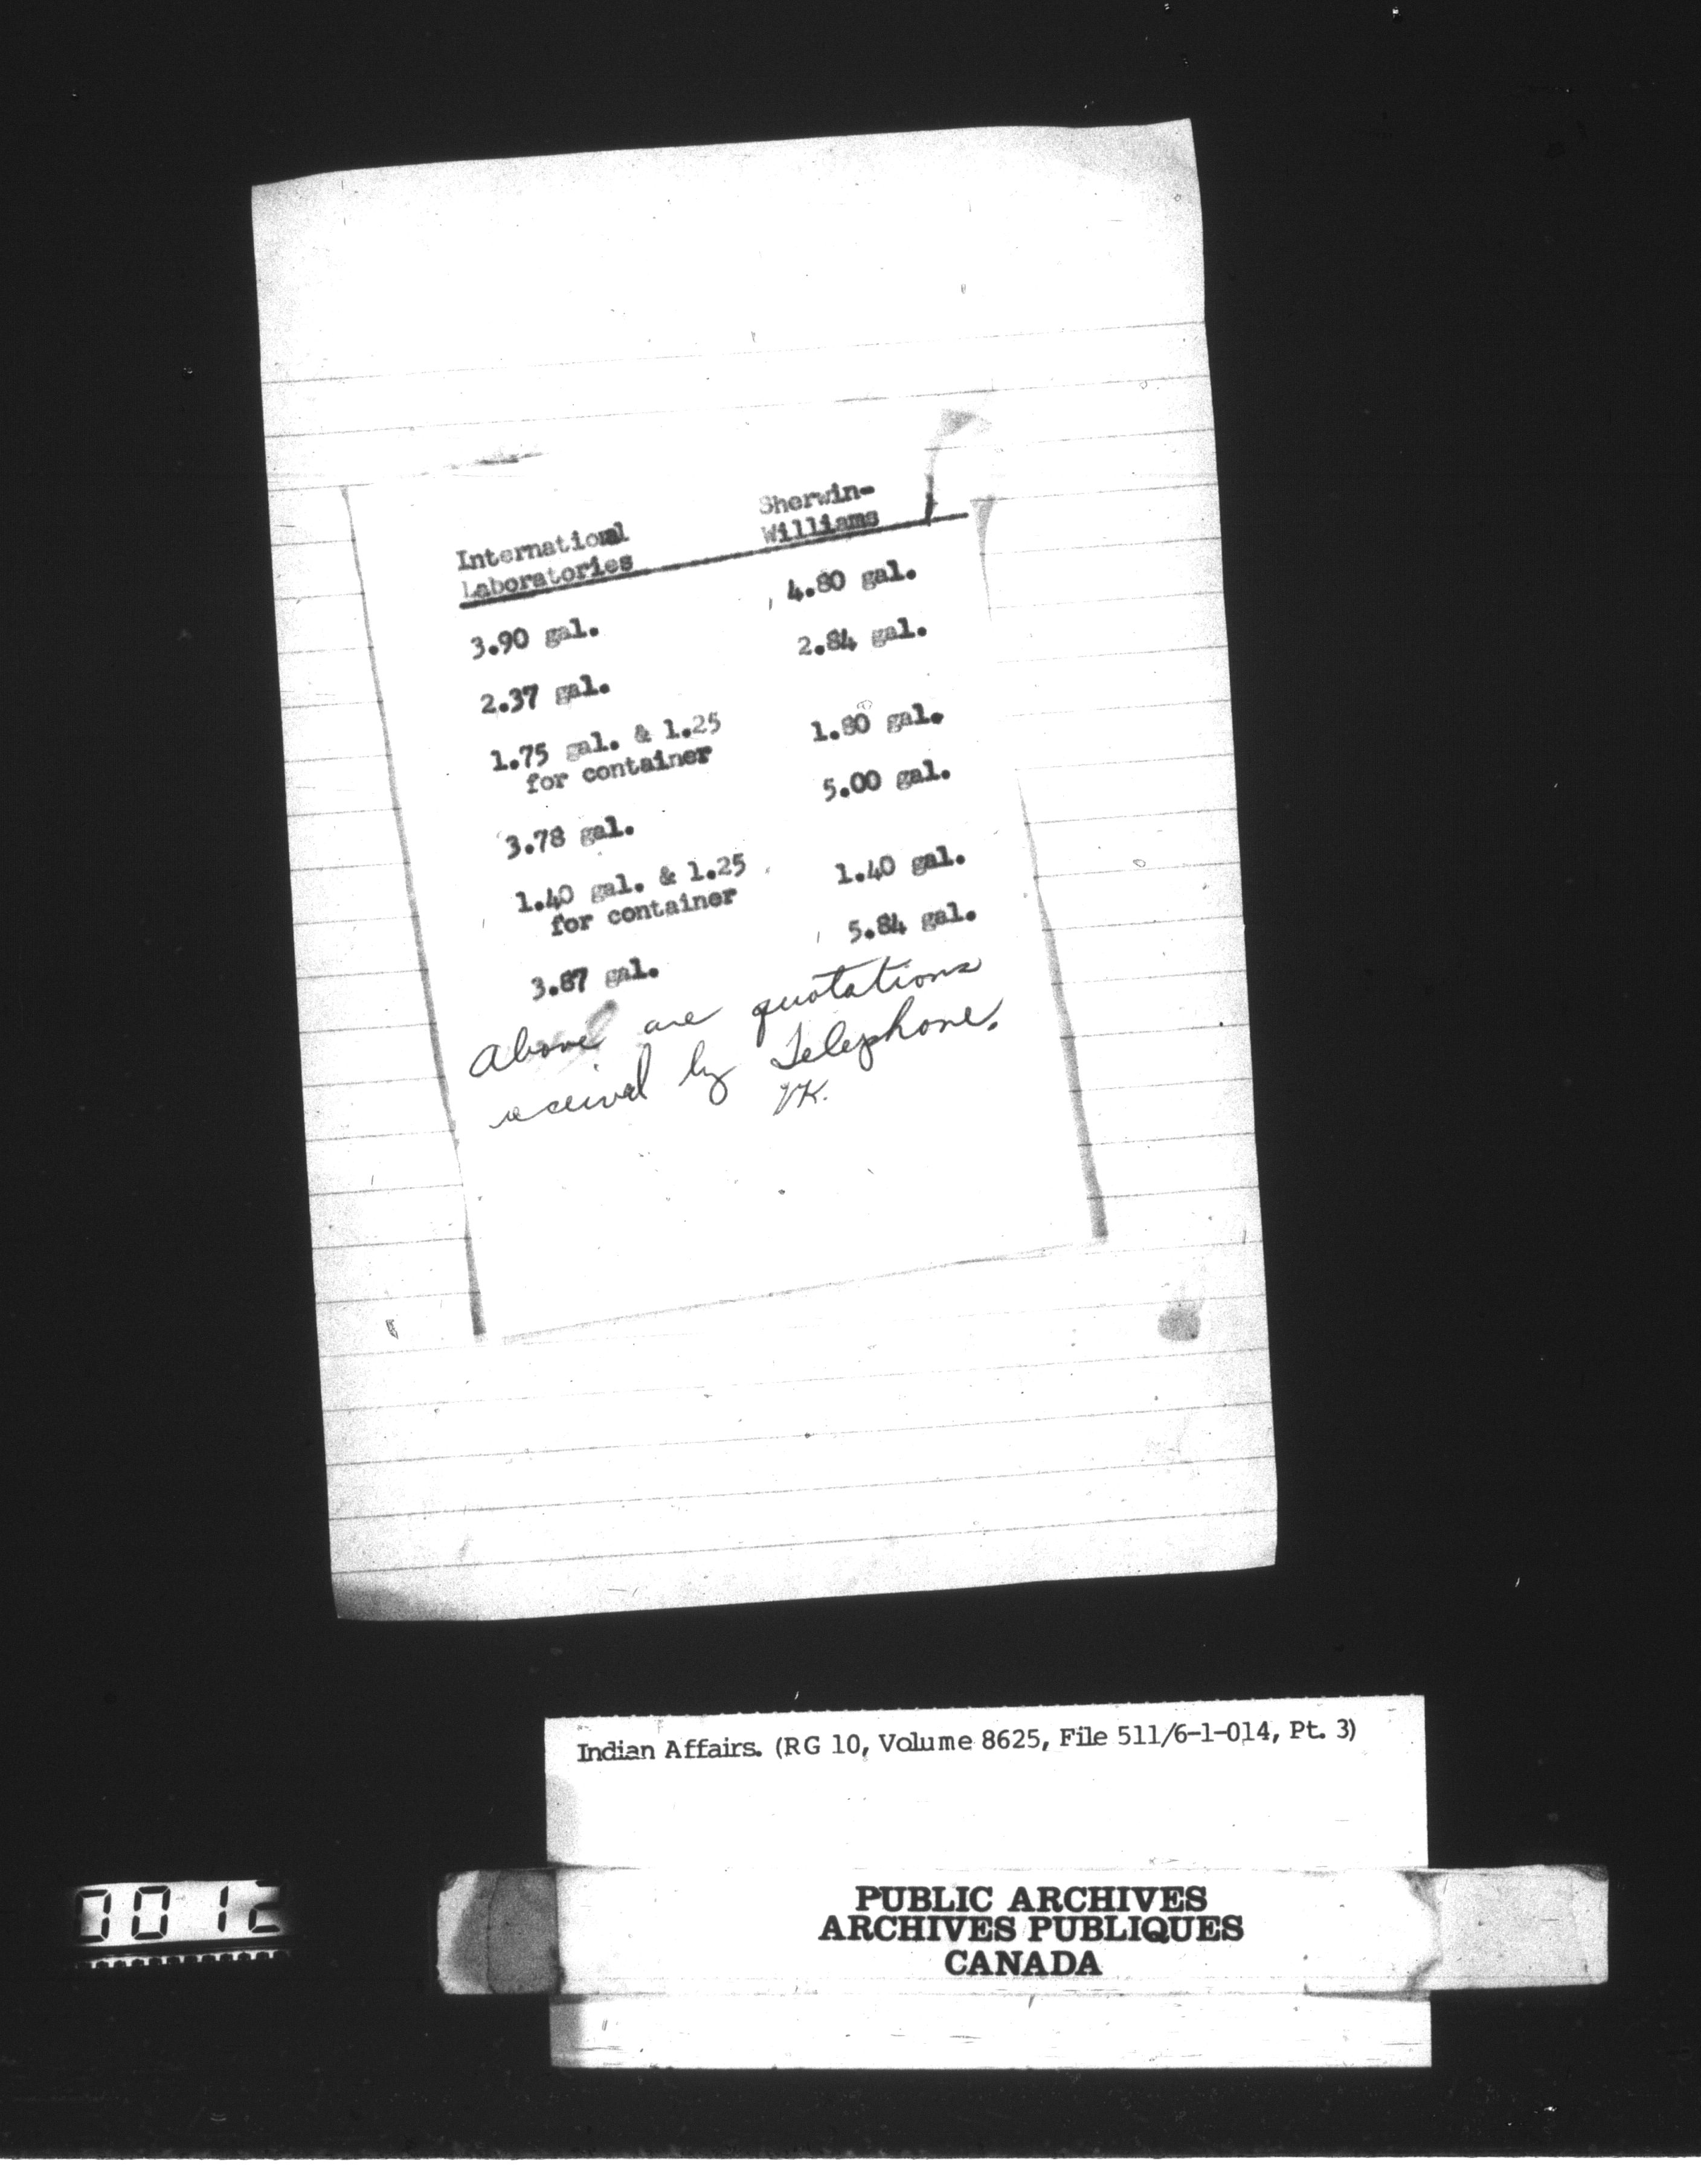 International Laboratories    Sherwin-Williams
3.90 gal.    4.80 gal.
2.37 gal.    2.84 gal.
1.75 gal. & 1.25    1.80 gal.
for container
3.78 gal.    5.00 gal.
1.40 gal. & 1.25    1.40 gal.
for container
3.87 gal.    5.84 gal.
Above are quotations
received by Telephone.
VK.
Indian Affairs. (RG 10, Volume 8625, File 511/6-1-014, Pt. 3)
PUBLIC ARCHIVES
ARCHIVES PUBLIQUES
CANADA
0012